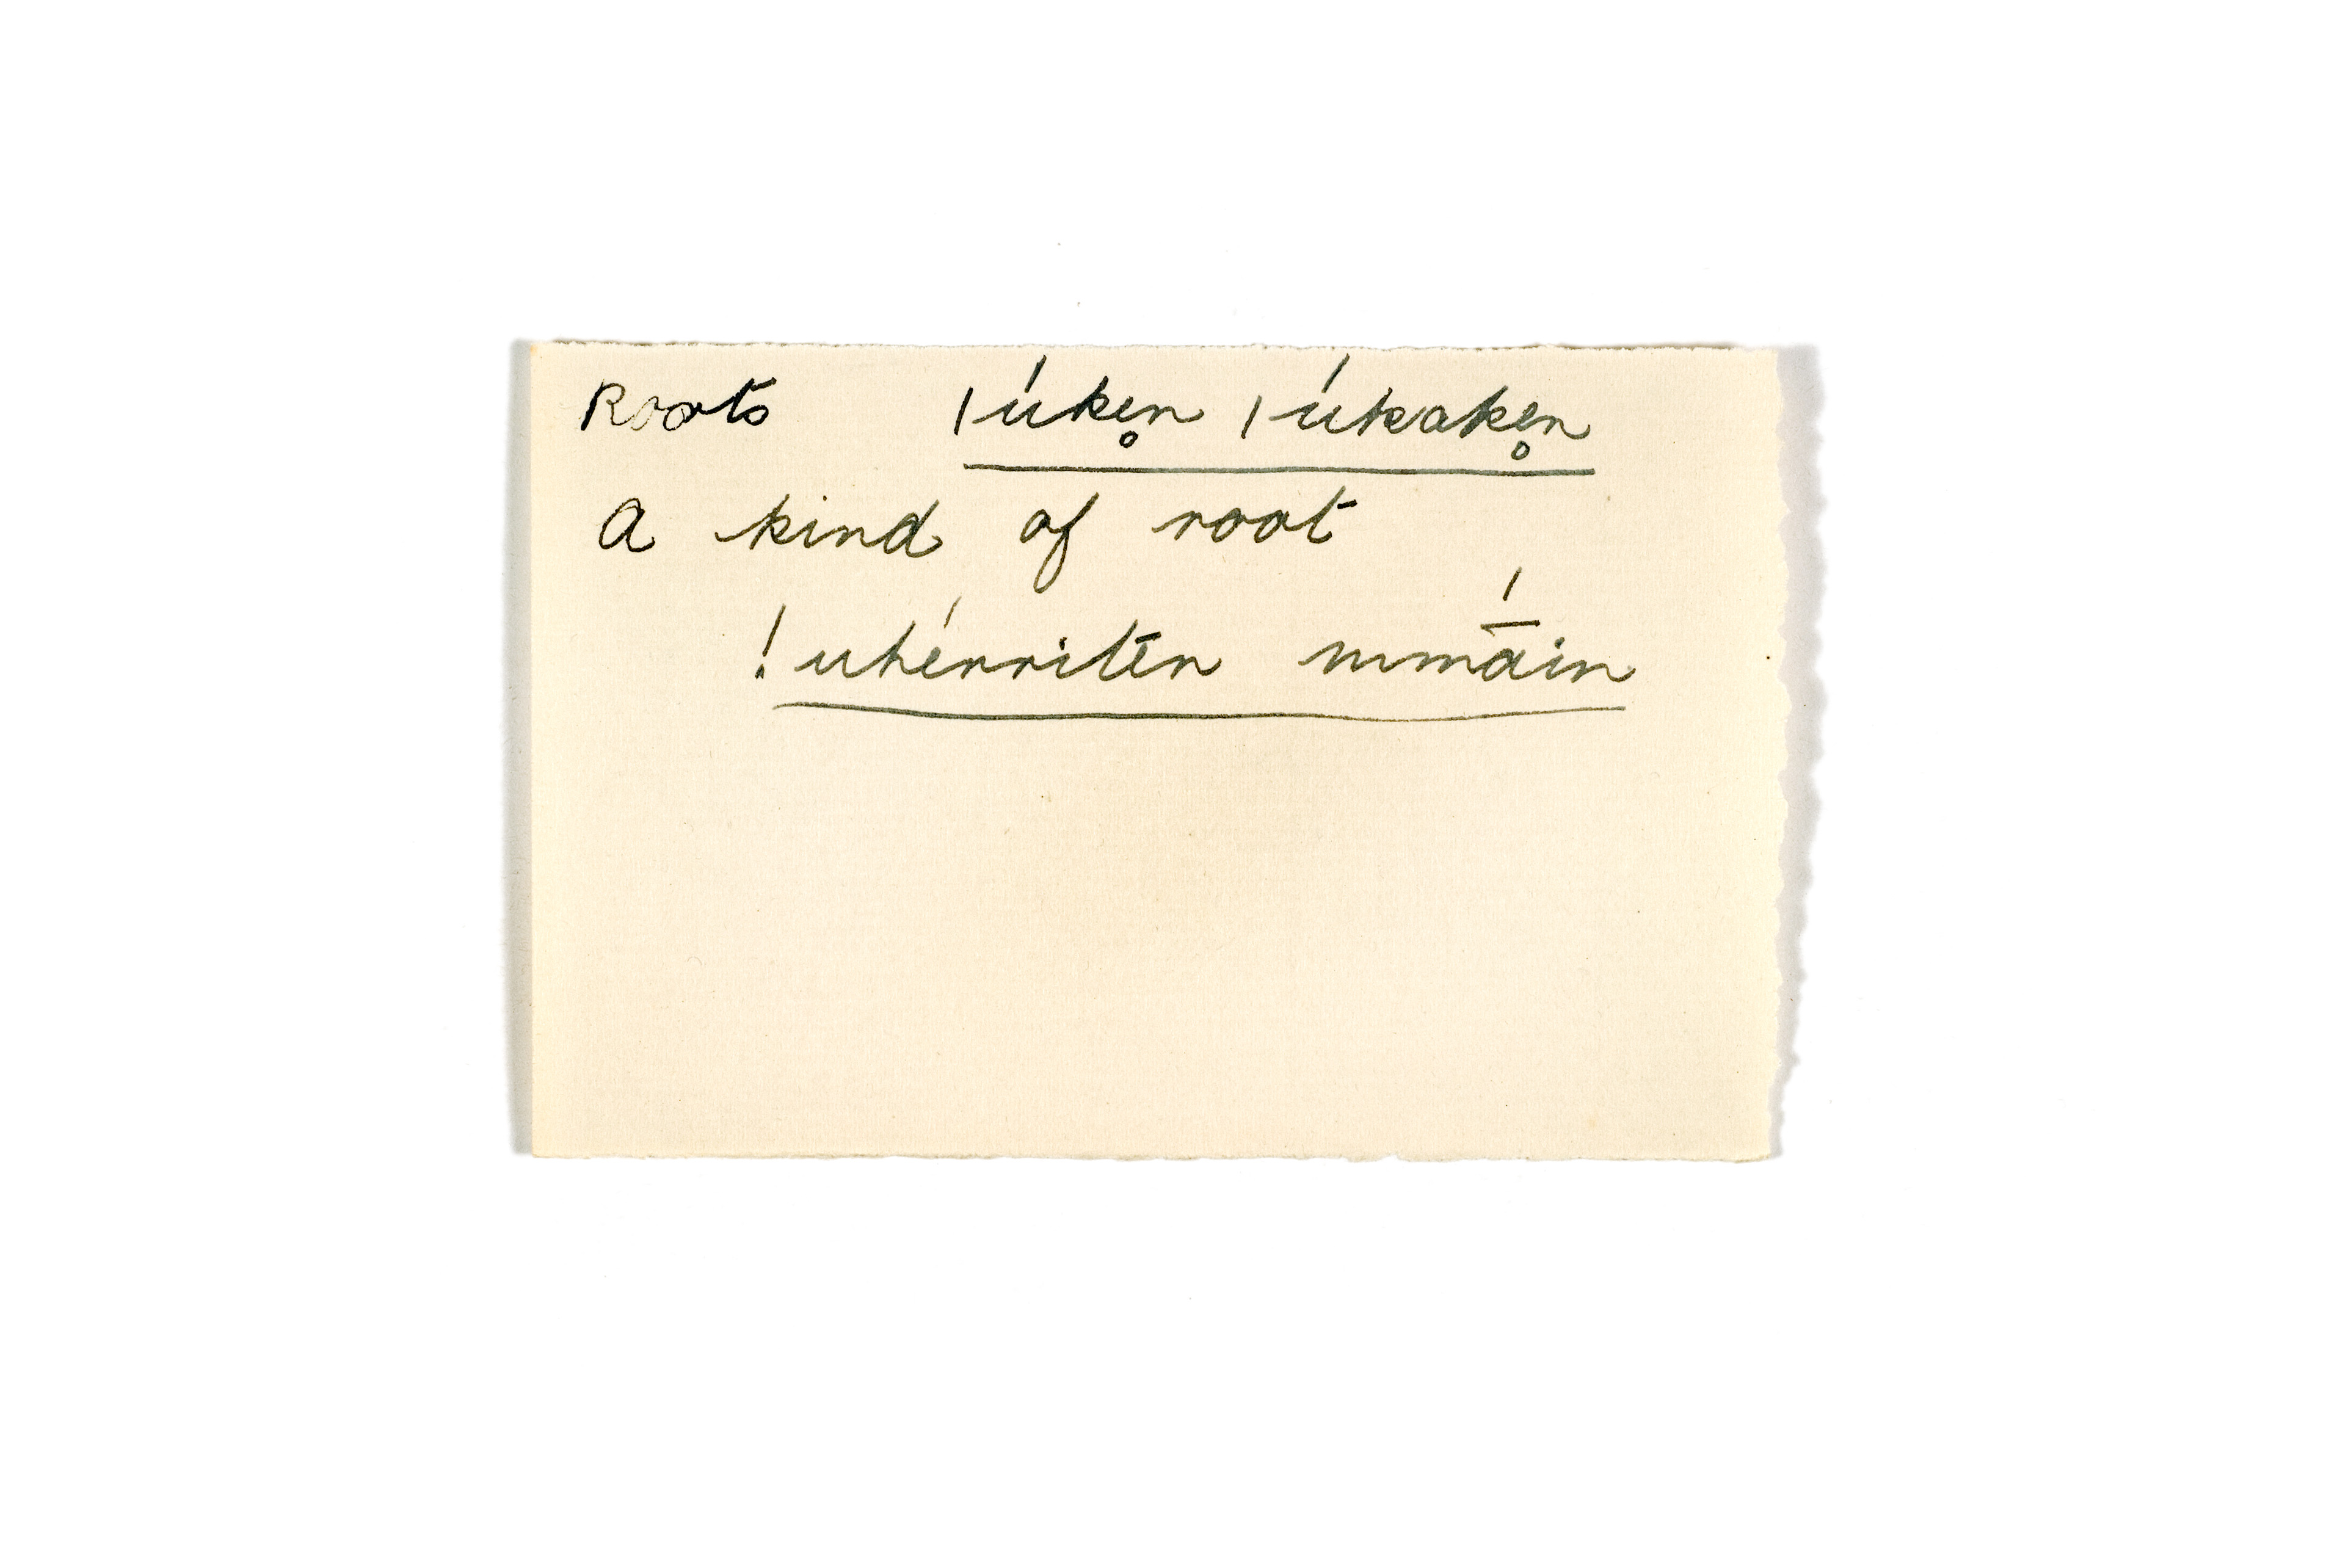 Roots ǀúke̥n ǀúkake̥n
A kind of root
!uhérritẽn mmā́in